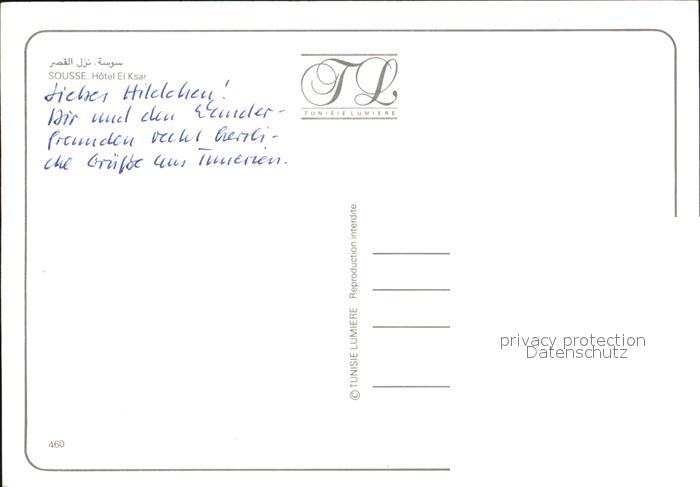 سوسة . نزل القصر
SOUSSE. Hôtel El Ksar
Liebes Hildchen!
Dir und den Wander-
freunden recht herzli-
che Grüße aus Tunesien.
TL
TUNISIE LUMIERE
© TUNISIE LUMIERE Reproduction interdite.
privacy protection
Datenschutz
460